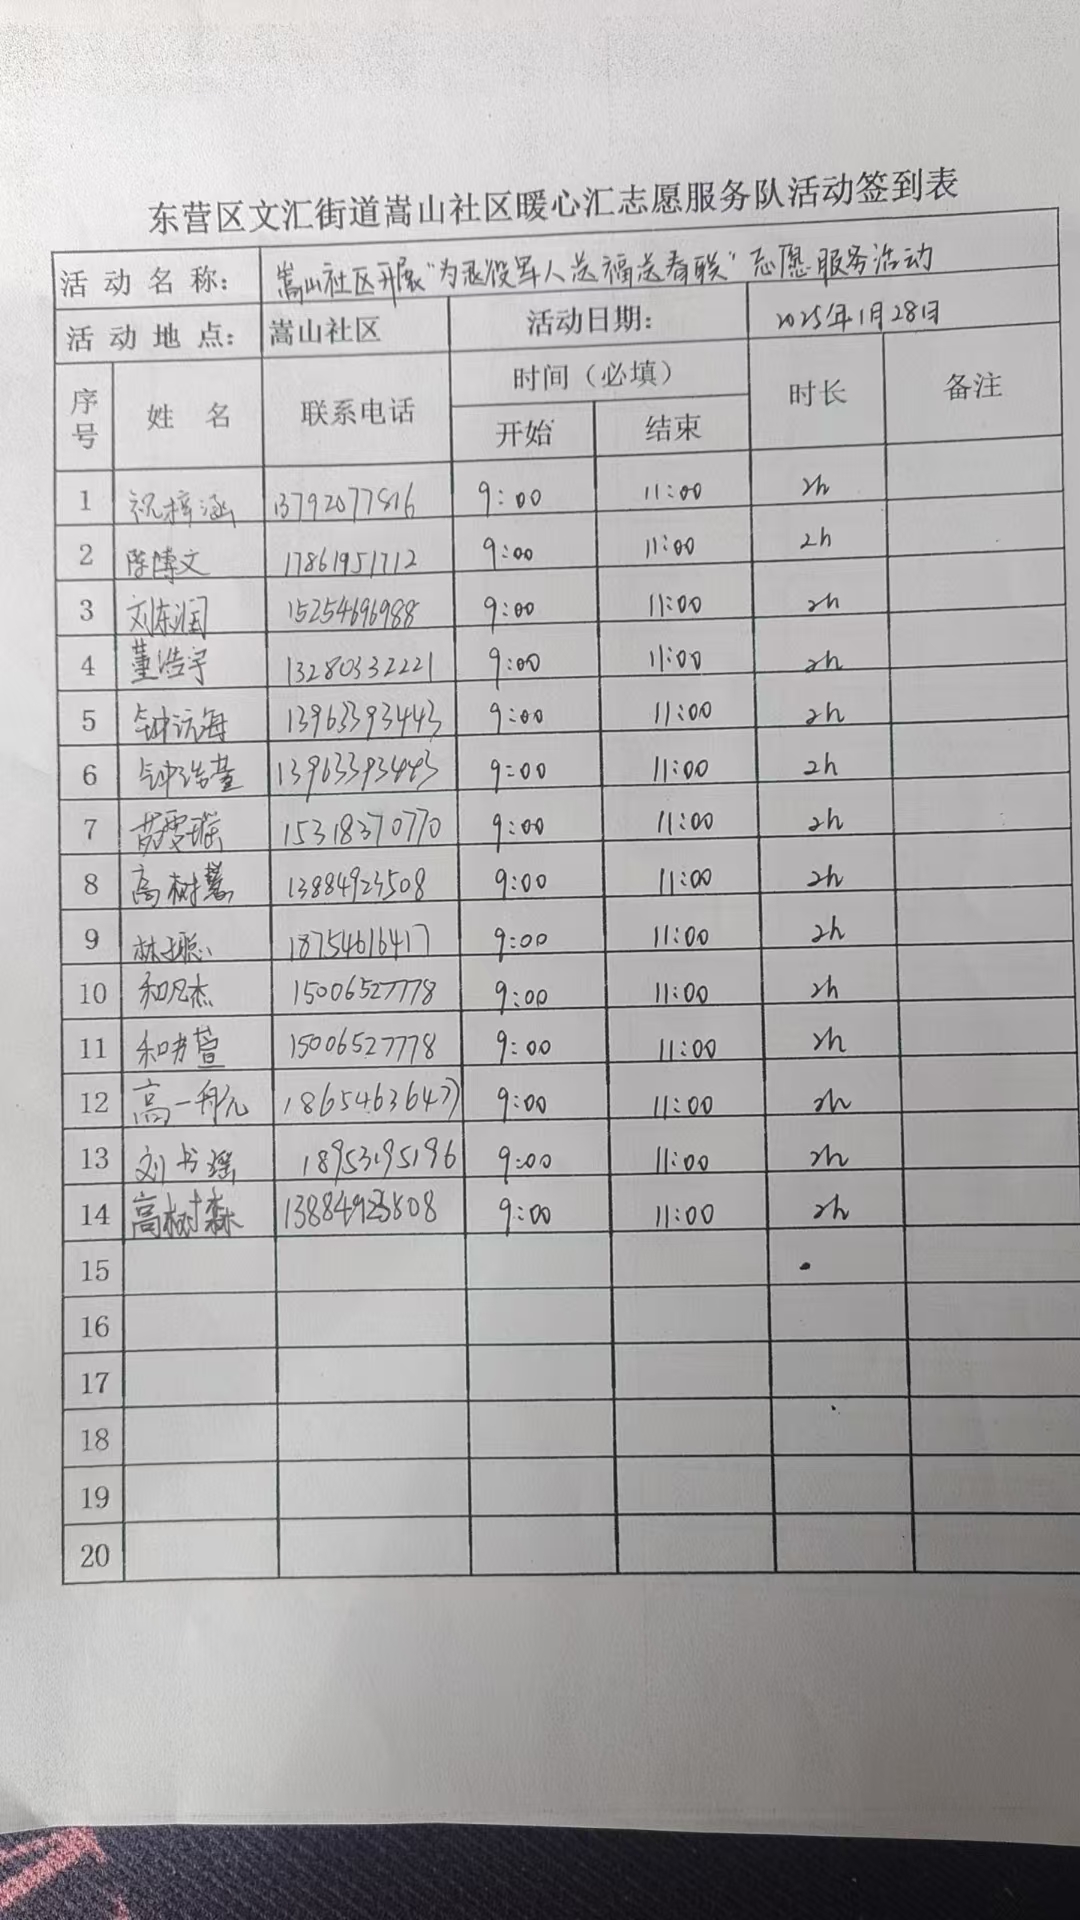 东营区文汇街道嵩山社区暖心汇志愿服务队活动签到表
活动名称： 嵩山社区开展“为退役军人送福送春联”志愿服务活动
活动地点： 嵩山社区 活动日期： 2025年1月28日
序号 姓名 联系电话 时间（必填） 时长 备注
开始 结束
1 祝梓涵 13792077816 9:00 11:00 2h
2 陈博文 17861951712 9:00 11:00 2h
3 刘东润 15254696988 9:00 11:00 2h
4 董浩宇 13280332221 9:00 11:00 2h
5 钟沅海 13963393443 9:00 11:00 2h
6 钟浩萱 13963393443 9:00 11:00 2h
7 15318370770 9:00 11:00 2h
8 高树慧 13884923508 9:00 11:00 2h
9 林聪 18754616417 9:00 11:00 2h
10 和凡杰 15006527778 9:00 11:00 2h
11 和萱 15006527778 9:00 11:00 2h
12 高一航 18654636477 9:00 11:00 2h
13 刘书瑶 18953195196 9:00 11:00 2h
14 高树森 13884923508 9:00 11:00 2h
15
16
17
18
19
20